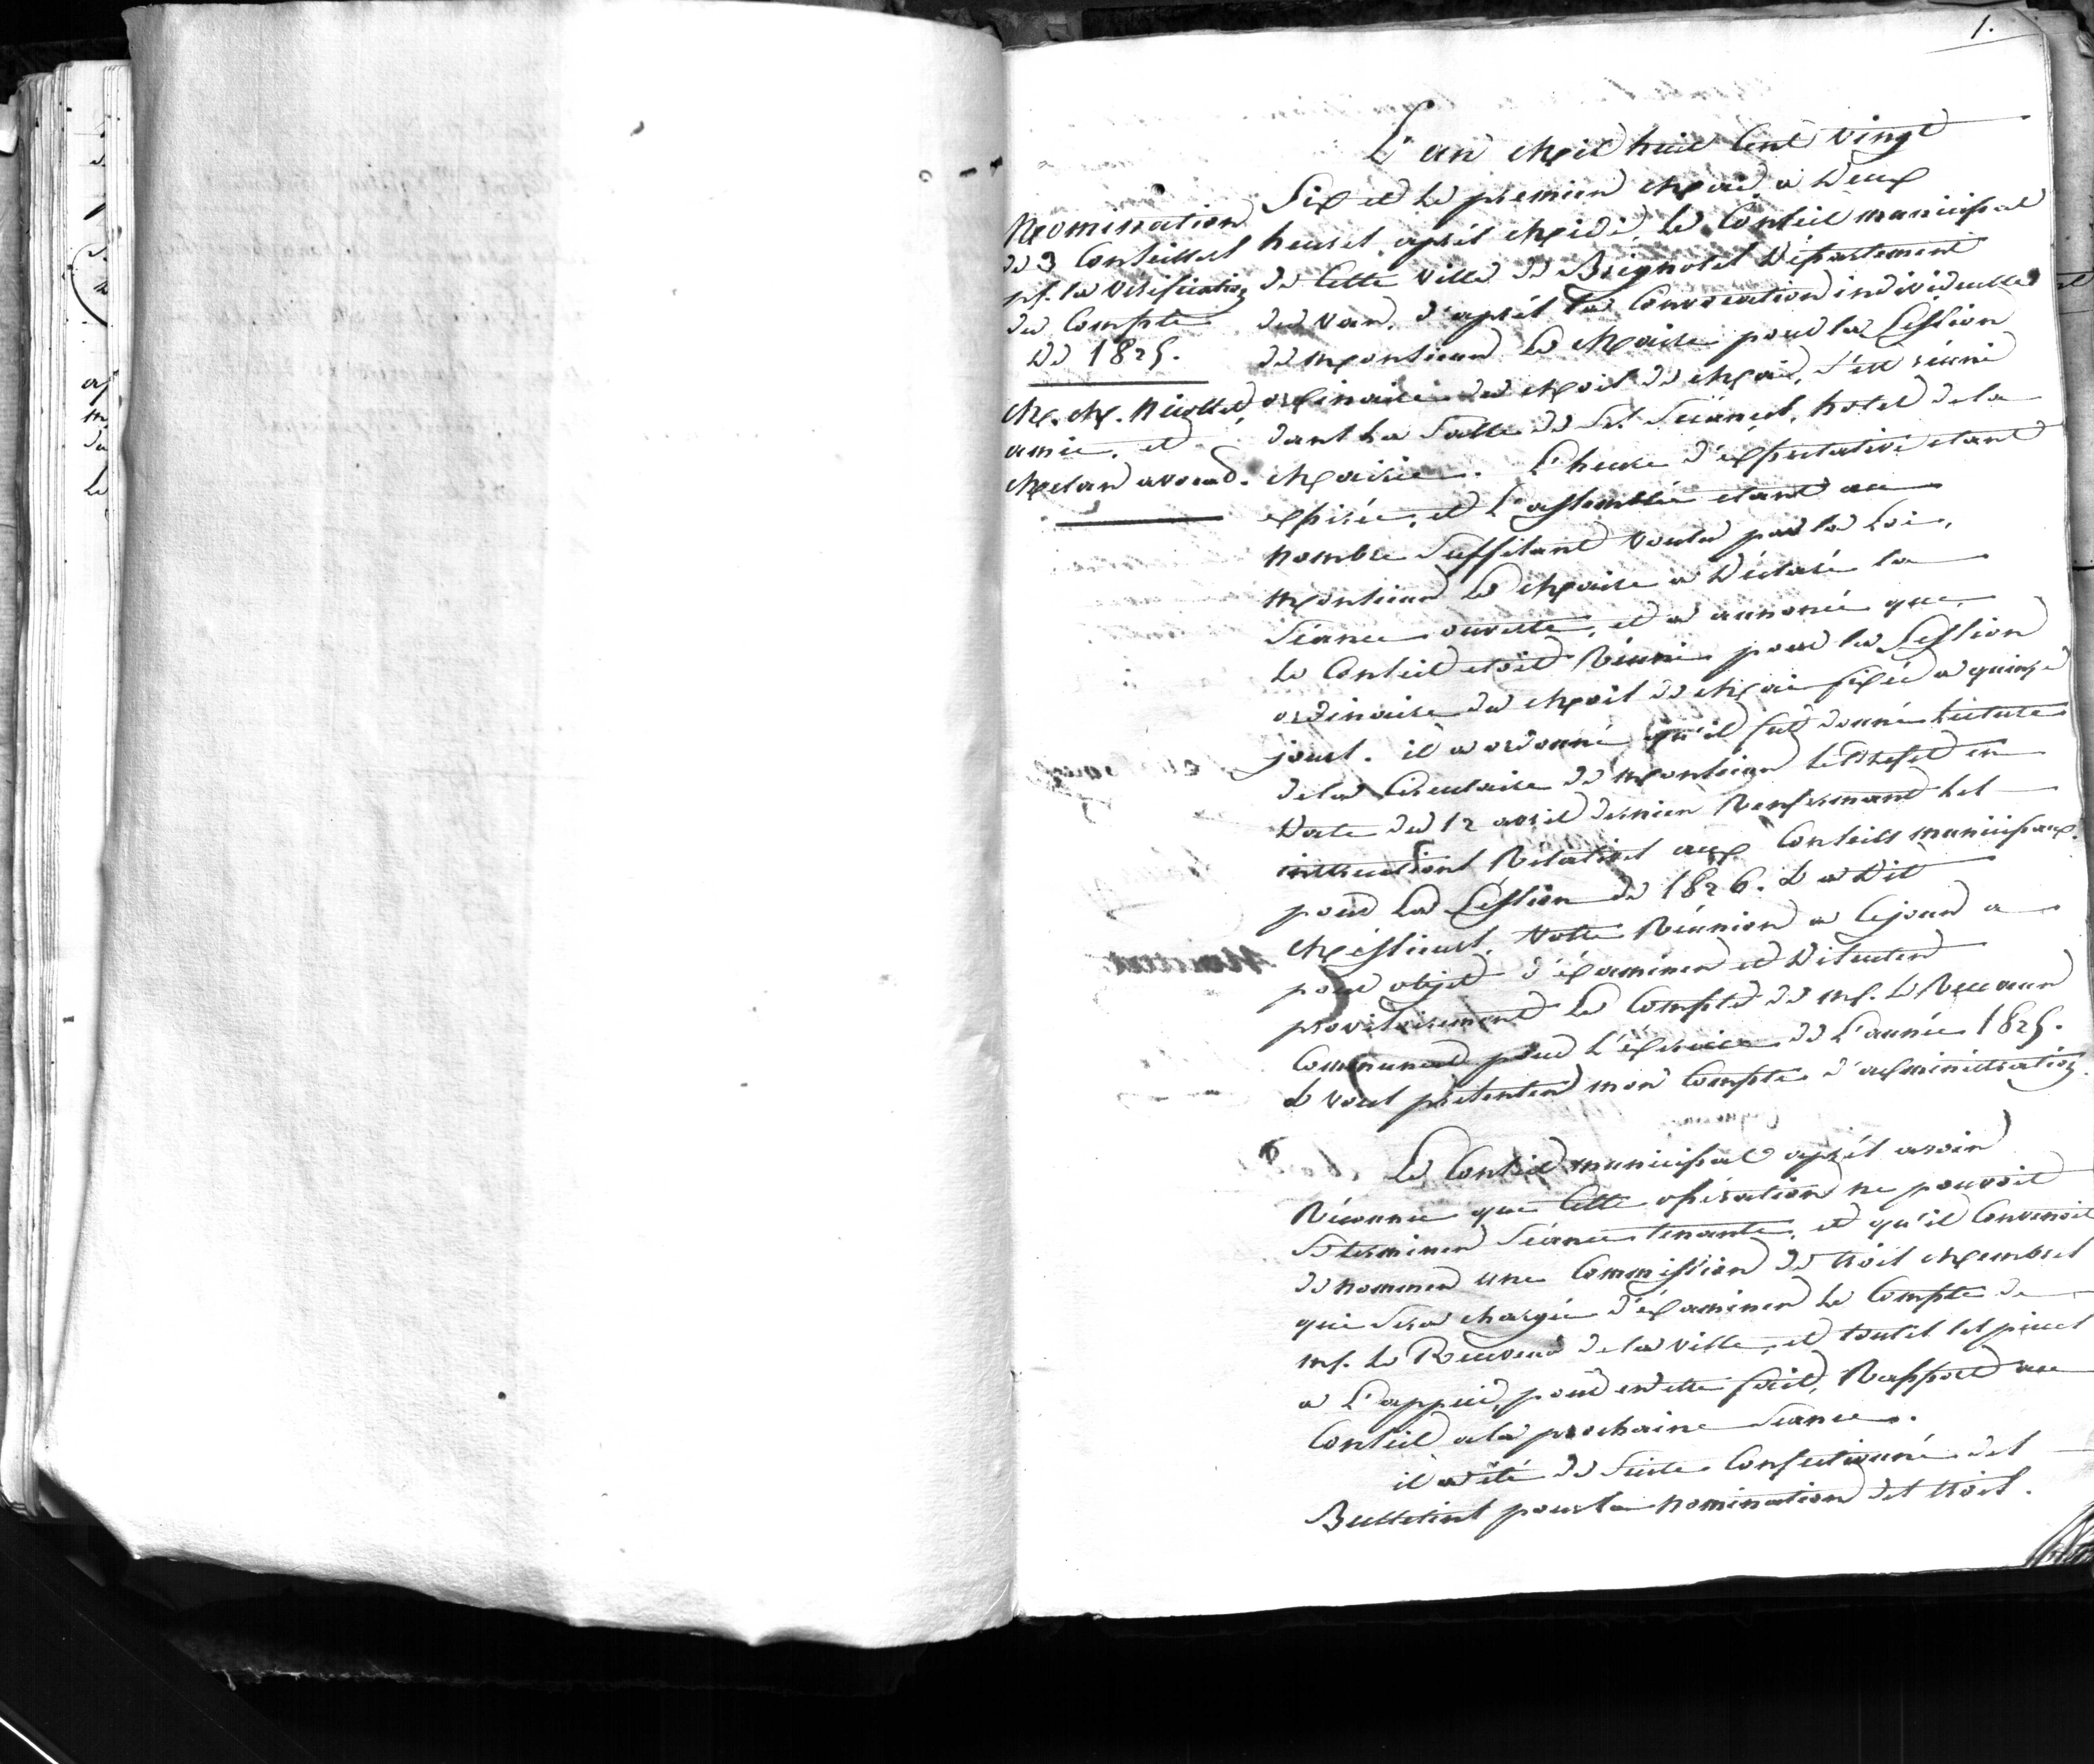 1.
L'an Mil huit Cent vingt
Six et le premier Mai a Deux
heures après Midi le Conseil municipal
de Cette ville de Brignoles Département
du var, d'après la Convocation individuelle
de Monsieur le Maire pour la Cession
ordinaire du Mois de Mai, s'est réuni
dans la Salle de Ses Séances, hotel de la
Mairie. L'heure d'expectative etant
expirée, et L'assemblée etant au
nombre Suffisant voulu par la Loi,
Monsieur le Maire a Déclaré la
Séance ouverte, et a annoncé que
le Conseil etoit Réuni pour la Session
ordinaire du Mois de Mai fixée a quinze
jours. il a ordonné qu'il fut donné lecture
de la Circulaire de Monsieur le Préfet en
Date du 12 avril dernier Renfermant les
instructions Relatives aux Conseils municipaux
pour La Céssion de 1826. & a Dit
Méssieurs, votre Réunion a Ce jour a
pour objet d'éxaminer et Discuter
provisoirement le Compte de Mr. le Receveur
Communal pour l'éxercice de L'année 1825.
& vous présenter mon Compte d'administration.
Le Conseil municipal après avoir
Réconnu que Cette opération ne pouvoit
Se terminer Séance tenante, et qu'il Convenoit
de nommer une Commission de trois Membres
qui Sera chargée d'éxaminer le Compte de
Mr. le Receveur de la ville, et toutes les pieces
a L'appui, pour en etre fait, Rapport au
Conseil a la prochaine Séance.
il a été de Suite Confectionné des
Bulletins pour la nomination des trois.
Nomination
de 3 Conseillers
pr. la vérification
du Compte
de 1825.
M. M. Nicolle,
amic, et
Melan avocat.